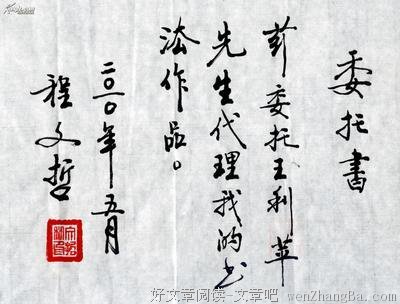 委托書
兹委托王利苹
先生代理我的书
法作品。
二〇一〇年五月
程文哲
好文章阅读-文章吧 wenZhangBa.com